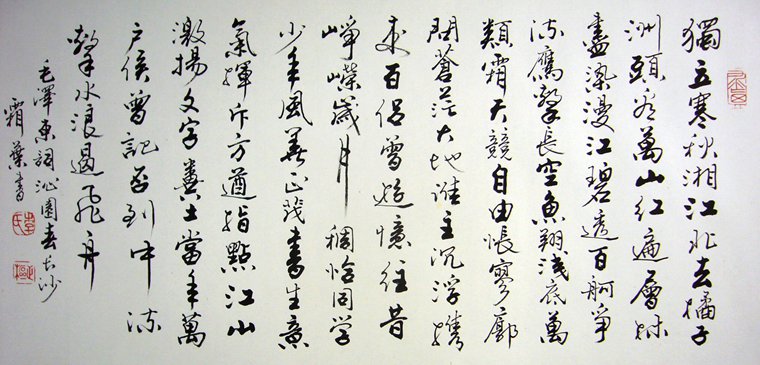 獨立寒秋湘江北去橘子
洲頭看萬山紅遍層林
盡染漫江碧透百舸爭
流鷹擊長空魚翔淺底萬
類霜天競自由悵寥廓
問蒼茫大地誰主沉浮攜
來百侶曾遊憶往昔
崢嶸歲月稠恰同学
少年風華正茂書生意
氣揮斥方遒指點江山
激揚文字糞土當年萬
户侯曾記否到中流
擊水浪遏飛舟
毛澤東詞沁園春长沙
霜葉書